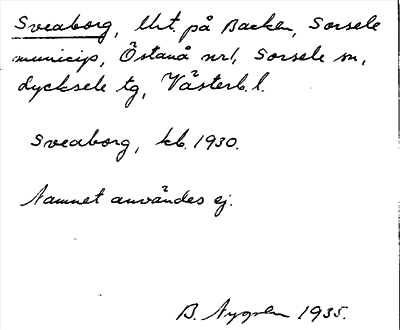 Sveaborg, lht. på Backen, Sorsele
municip, Östanå nr1, Sorsele sn,
Lycksele tg, Västerb. l.
Sveaborg, kb. 1930.
Namnet användes ej.
B. Nygren 1935.